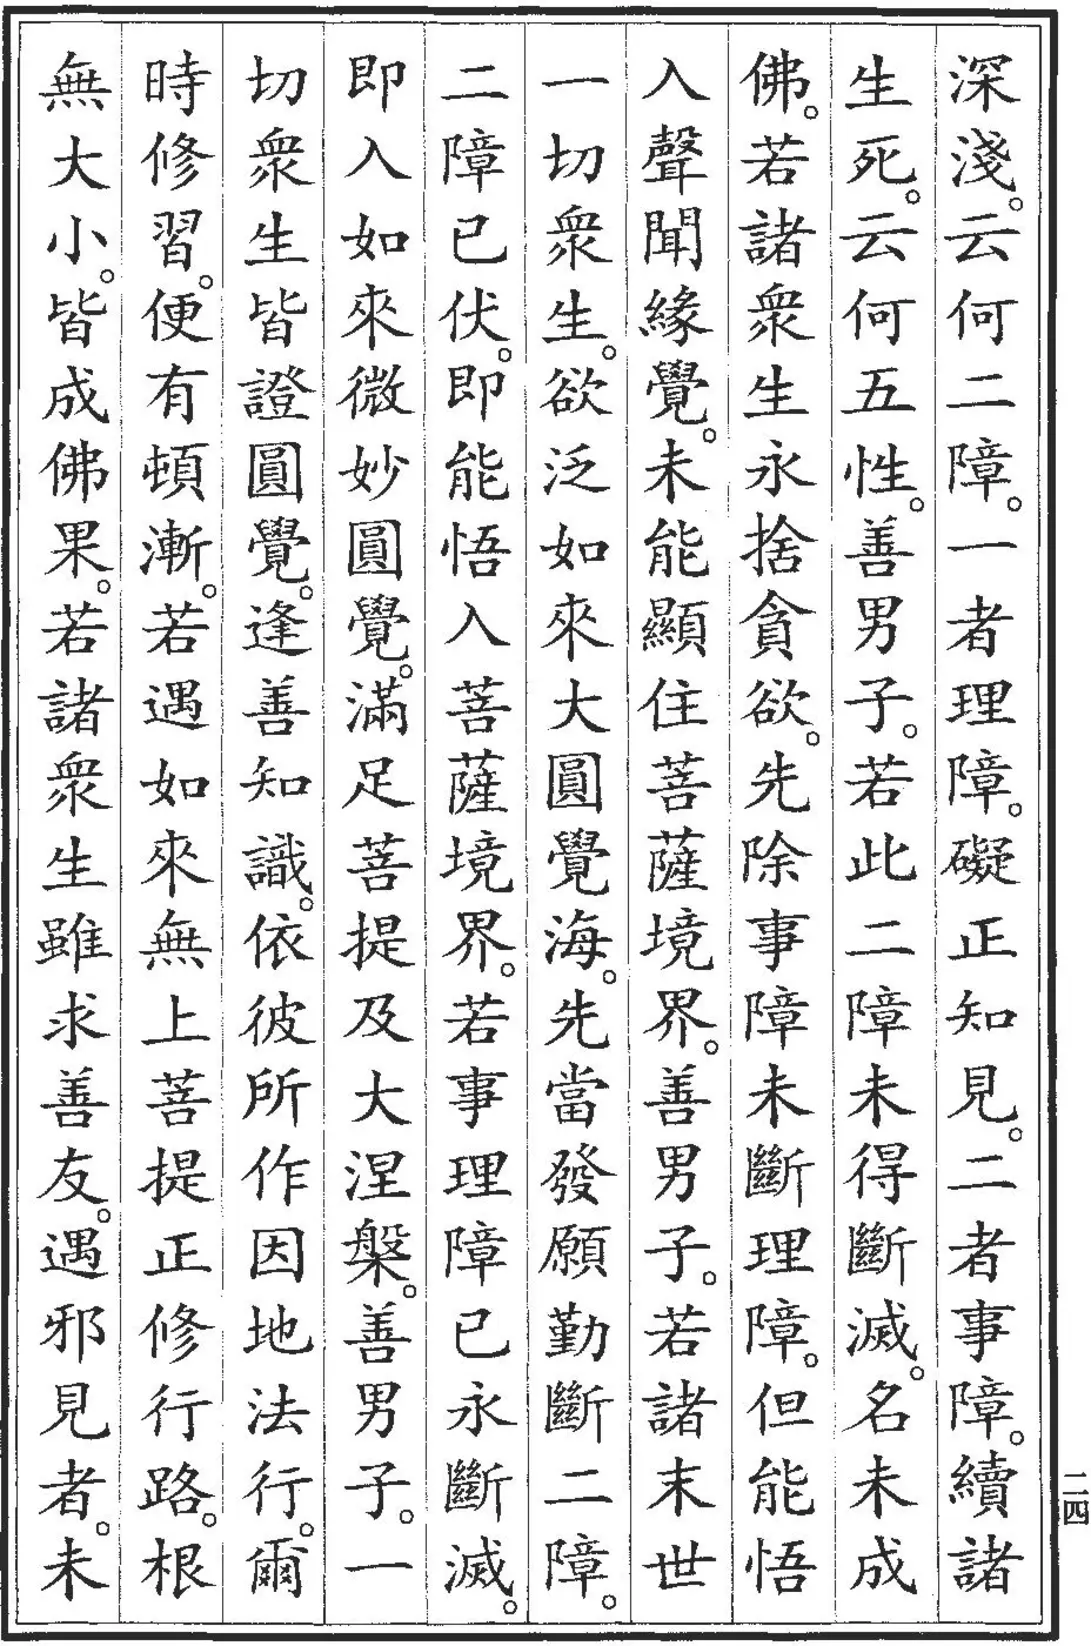 深淺。云何二障。一者理障。礙正知見。二者事障。續諸
生死。云何五性。善男子。若此二障未得斷滅。名未成
佛。若諸衆生永捨貪欲。先除事障未斷理障。但能悟
入聲聞緣覺。未能顯住菩薩境界。善男子。若諸末世
一切衆生。欲泛如來大圓覺海。先當發願勤斷二障。
二障已伏。即能悟入菩薩境界。若事理障已永斷滅。
即入如來微妙圓覺。滿足菩提及大涅槃。善男子。一
切衆生皆證圓覺。逢善知識。依彼所作因地法行。爾
時修習。便有頓漸。若遇如來無上菩提正修行路。根
無大小。皆成佛果。若諸衆生雖求善友。遇邪見者。未
二四